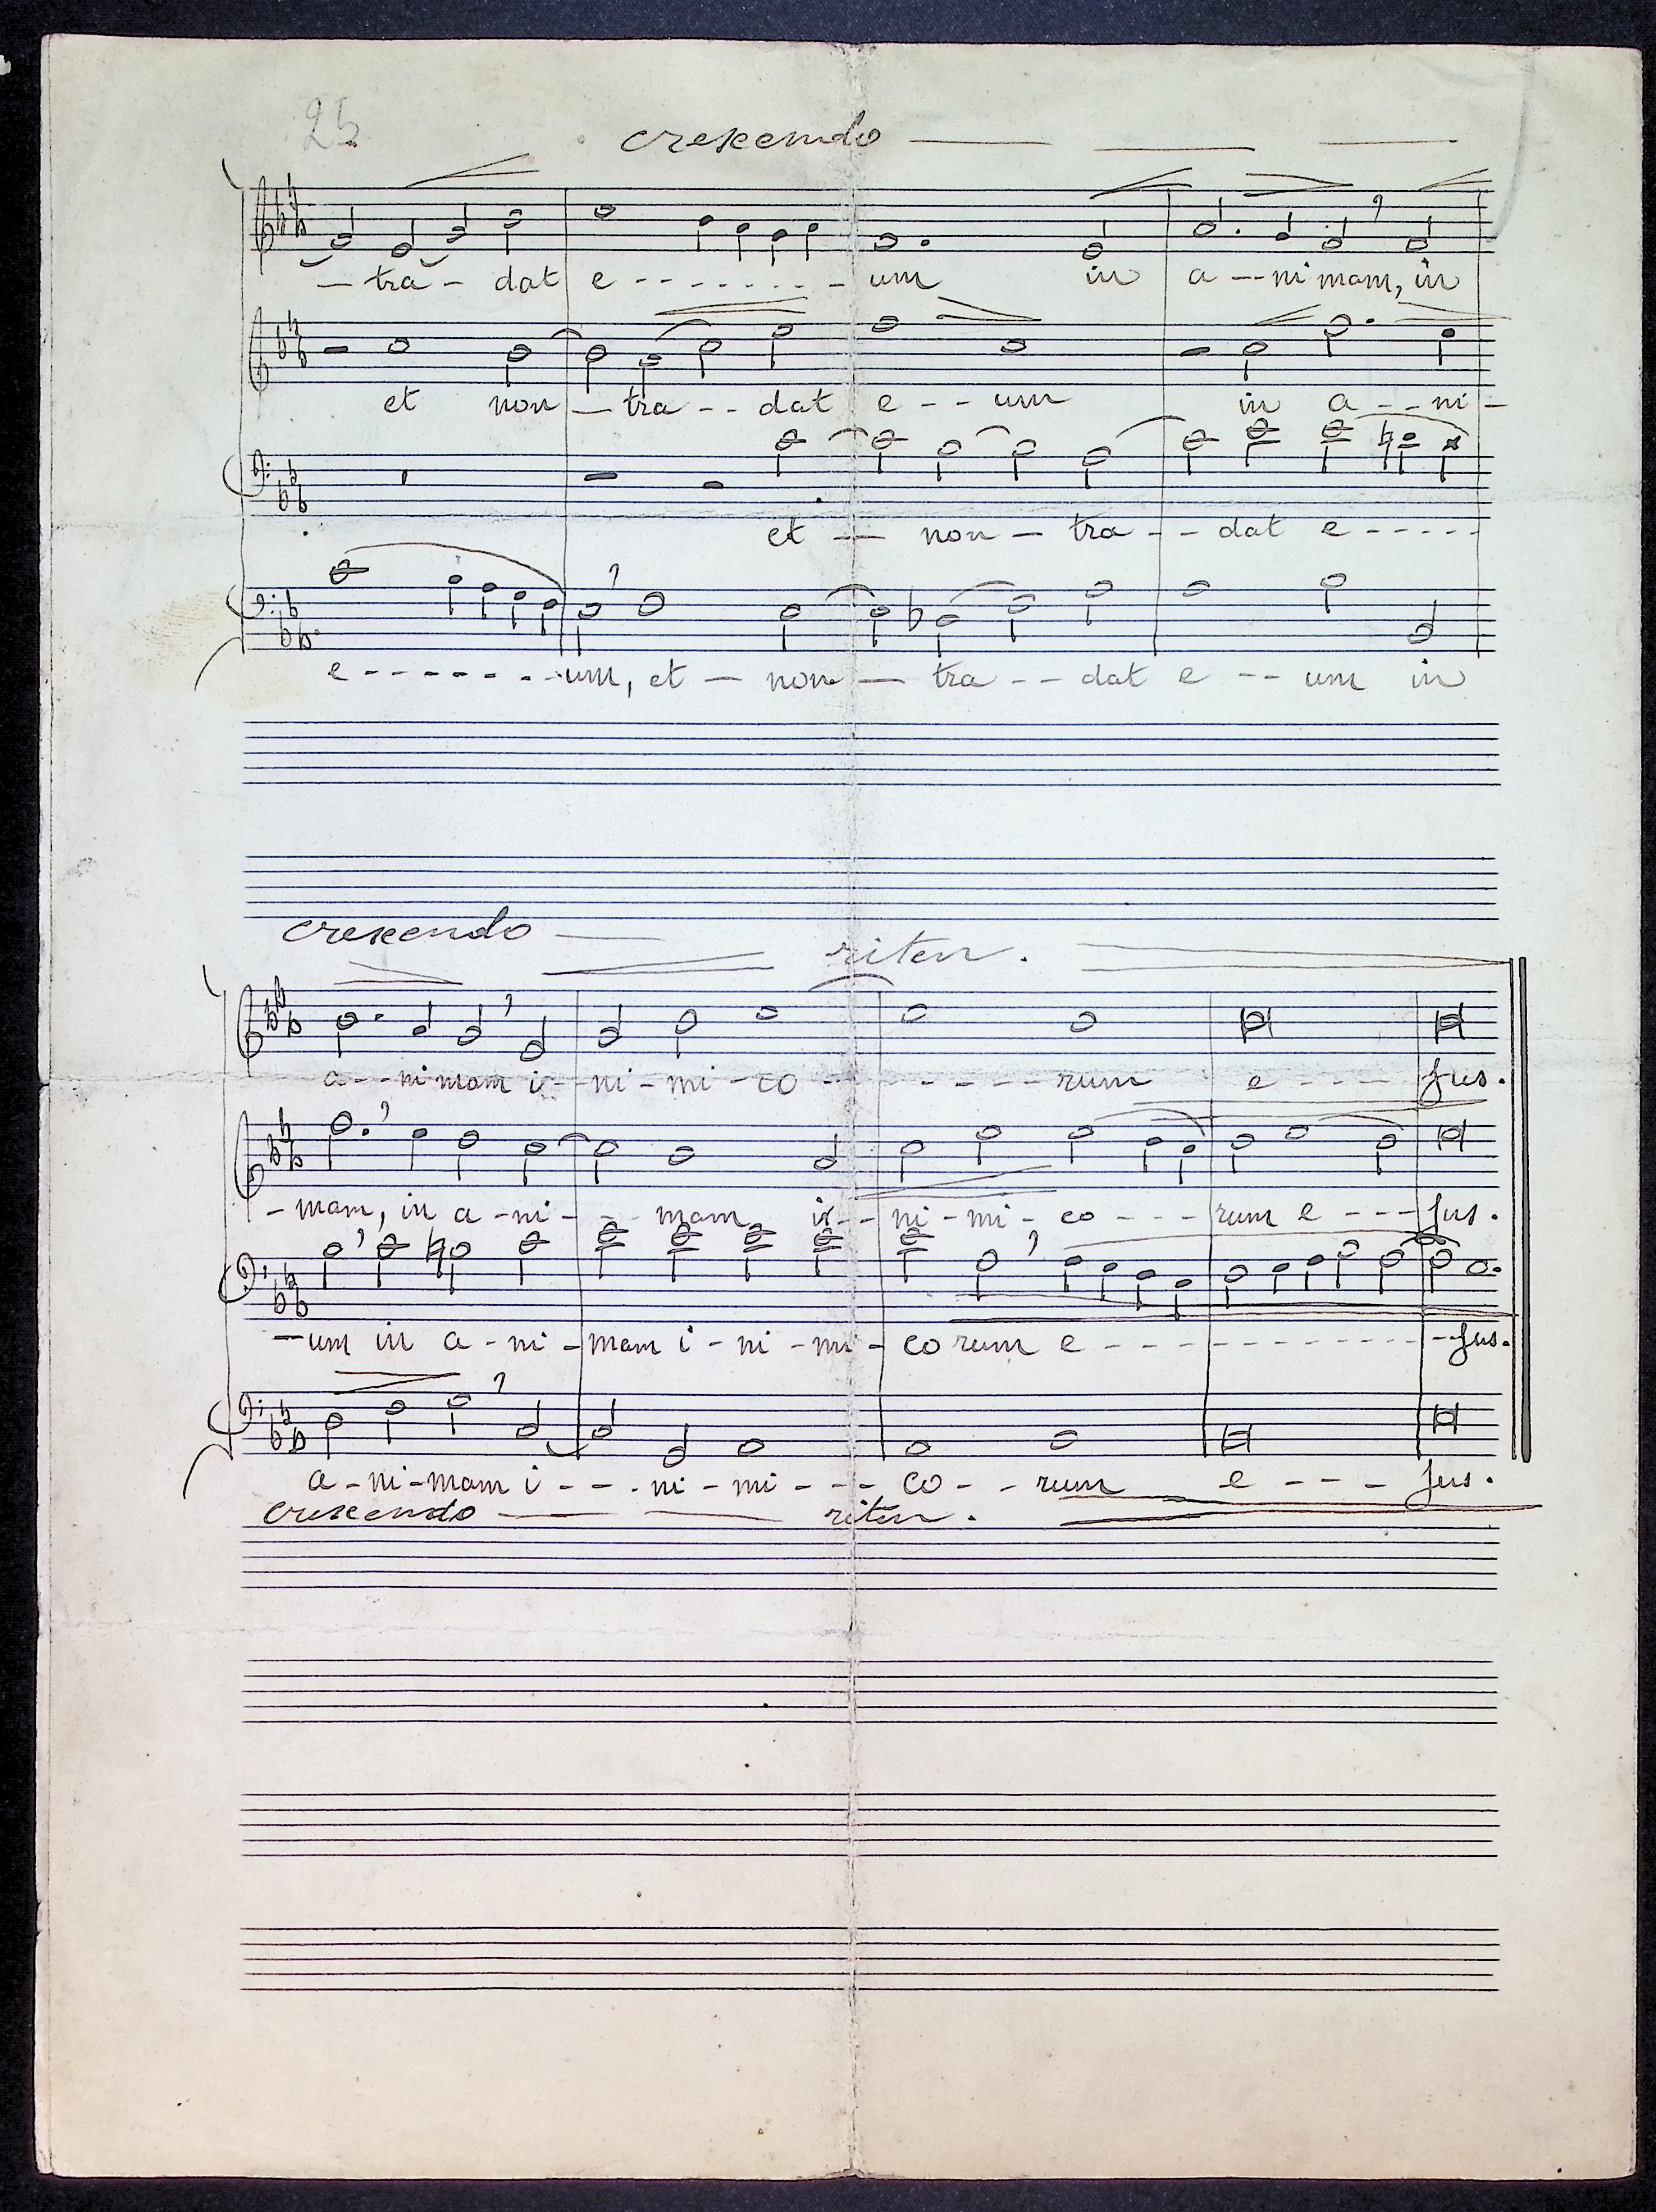 25
crescendo
— tra - dat e - - - - - - - - um in a - - ni mam, in
et non — tra - - dat e - - um in a - - ni -
et — non — tra - - dat e - - - - -
e - - - - - - - - um, et — non — tra - - dat e - - um in
crescendo — riten.
a - - ni mam i - - ni - mi - co - - - - - - rum e - - - - jus.
- mam, in a - ni - - - mam i - - ni - mi - co - - - rum e - - - jus.
— um in a - ni - mam i - ni - mi - co rum e - - - - - - - - - - - - jus.
a - ni - mam i - - - ni - mi - - - co - - rum e - - - jus.
crescendo — — riten.